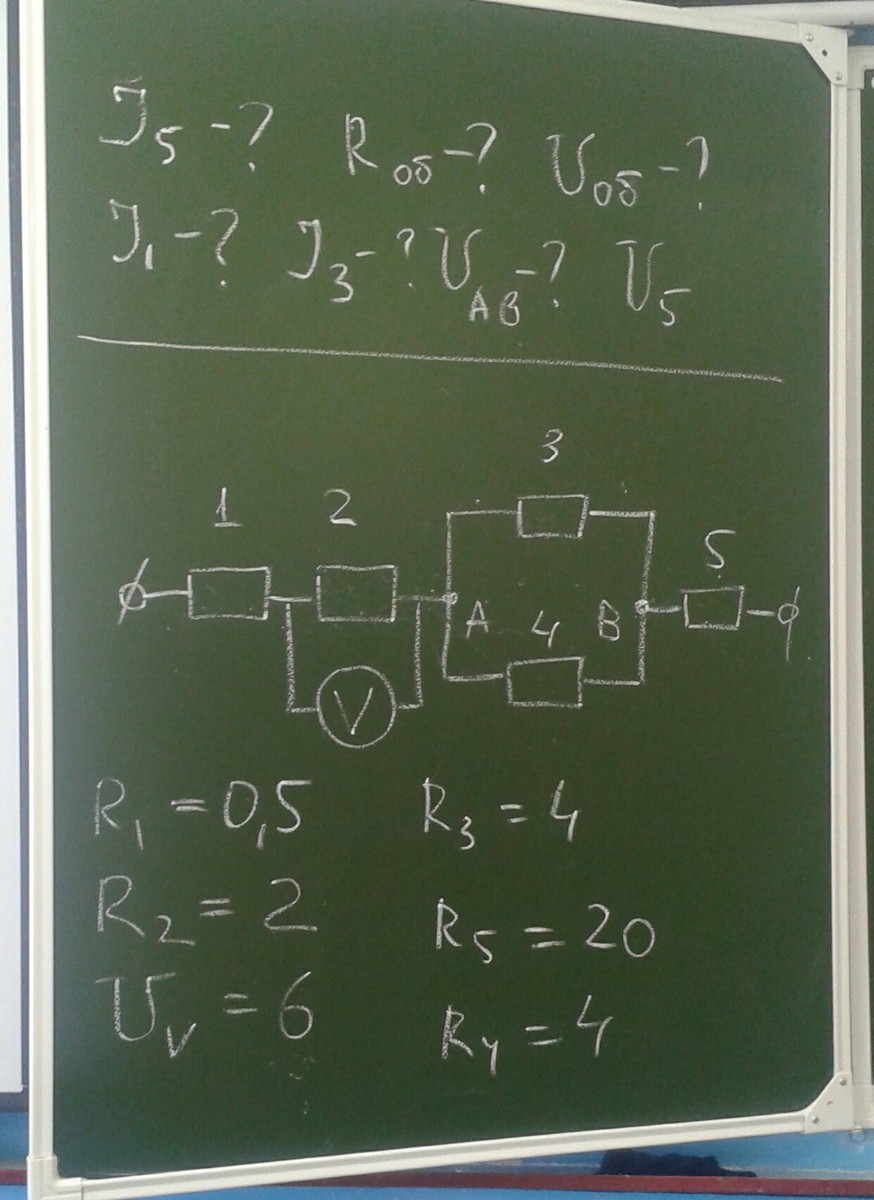 I₅ -? Rоб -? Uоб -?
I₁ -? I₃ -? U_AB -? U₅
3
1 2
5
A 4 B
V
R₁ = 0,5 R₃ = 4
R₂ = 2 R₅ = 20
U_V = 6 R₄ = 4